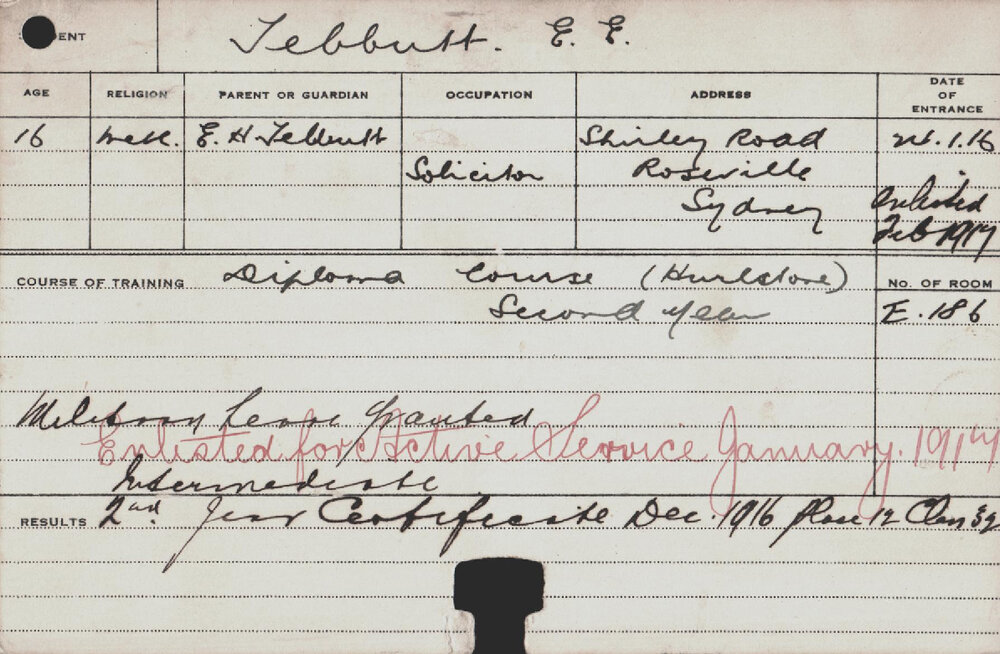 ENT Tebbutt. E. E.
AGE RELIGION PARENT OR GUARDIAN OCCUPATION ADDRESS DATE OF ENTRANCE
16 Meth. E. H. Tebbutt Shirley Road 24.1.16
Solicitor Roseville
Sydney Enlisted
Feb 1917
COURSE OF TRAINING Diploma Course (Hurlstone) No. OF ROOM
Second Year E. 186
Military Leave Granted
Enlisted for Active Service January. 1917
Intermediate
RESULTS 2nd Year Certificate Dec. 1916 Place 12 Class 32